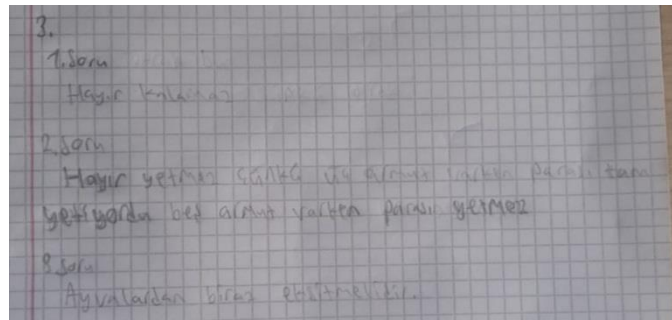 3.
1.Soru
Hayır kalamaz
2.Soru
Hayır yetmez çünkü üç armut varken parası tam
yetiyordu beş armut varken parası yetmez
3.Soru
Ayvalardan biraz eksitmelidir.